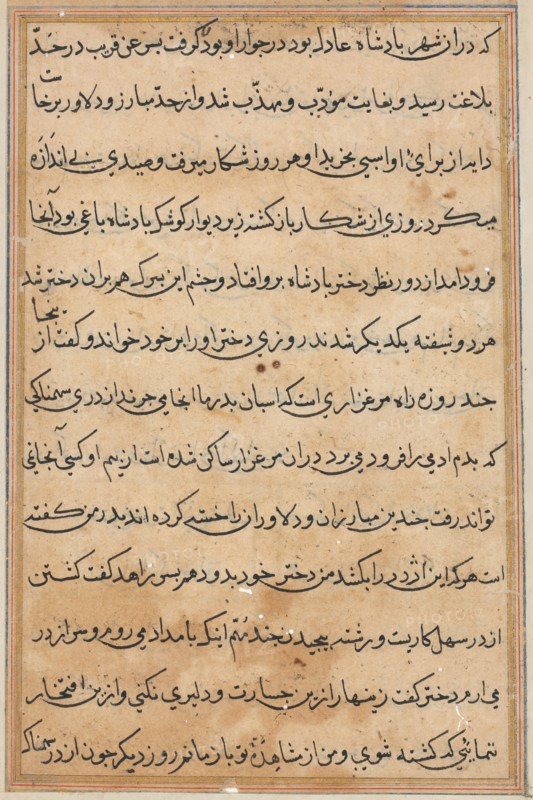 که در ان شهر بادشاه عادل بود در جوار او بود گرفت بسر عن قریب در حدّ
بلاغت رسید و بغایت مؤدّب و مهذّب شد و از حدّ مبارز و دلاور برخاست
دایه از برای او اسبی بخرید او هر روز شکار میرفت و صیدی بی اندازه
میکرد روزی از شکار بازگشته زیر دیوار کوشک بادشاه باغی بود آنجا
فرود امد از دور نظر دختر بادشاه برو افتاد و جشم این بسرک هم بران دختر شد
هر دو شیفته یکدیکر شدند روزی دختر اورا بر خود خواند و کفت از ینجا
جند روزه راه مرغزاری است که اسبان بدر ما انجا می جرند اژدری سهمناکی
که بدم ادمی را فرود می برد در ان مرغزار ساکن شده است از بیم او کسی آنجا نمی
تواند رفت جندین مبارزان و دلاوران را خسته کرده اند بدر من کفته
است هر که این اژدر را بکشد من دختر خود بدو دهم بسر زاهد کفت کشتن
اژدر سهل کاریست و رشته بیجیدن جند نهم اینک بامداد می روم و سر اژدر
می ارم دختر کفت زینهار ازین جسارت و دلیری نکنی و ازین افتخار
ننمائی که کشته شوی و من از مشاهدهٔ تو باز مانم روز دیکر جون اژدر سهمناک